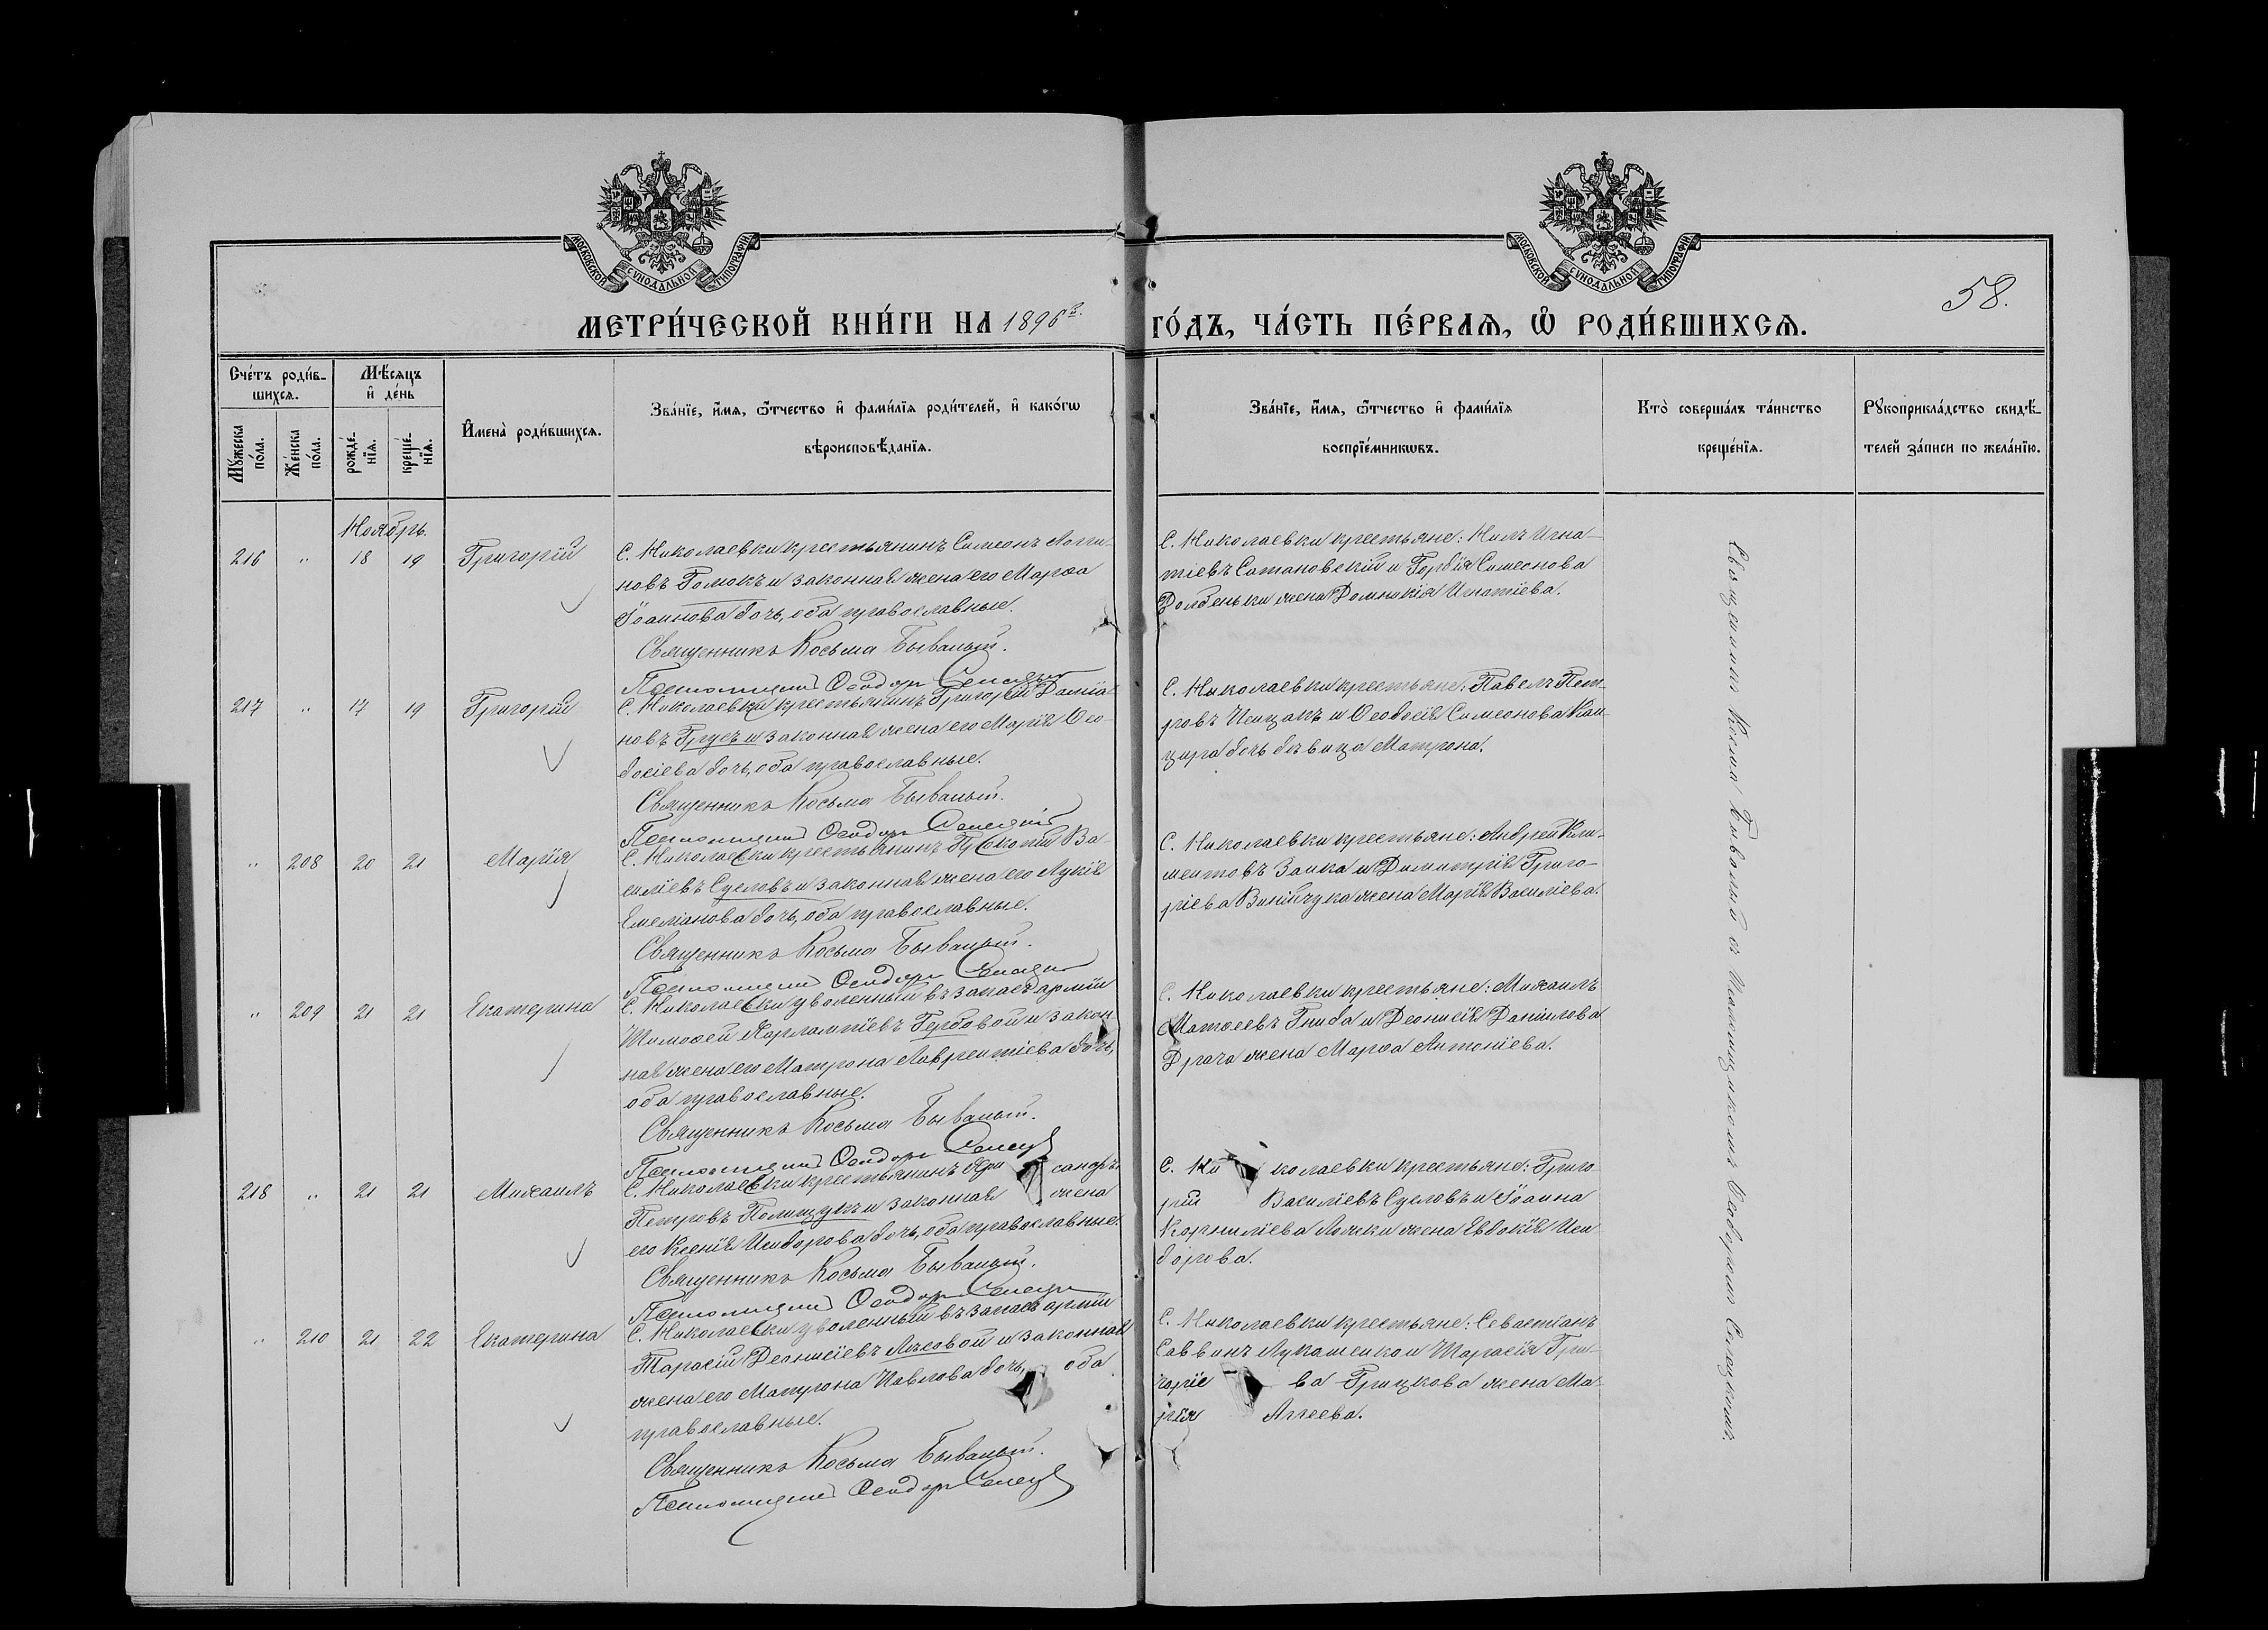 МОСКОВСКОЙ СѴНОДАЛЬНОЙ ТИПОГРАФІИ
МОСКОВСКОЙ СѴНОДАЛЬНОЙ ТИПОГРАФІИ
58.
МЕТРИ́ЧЕСКОЙ КНИ́ГИ НА 1896 г. ГО́ДЪ, ЧА́СТЬ ПЕ́РВАѦ, Ѽ РОДИ́ВШИХСѦ.
Сче́тъ роди́в-
шихсѧ.
Мѣ́сѧцъ
и҆ де́нь
Мꙋ́жеска
по́ла.
Же́нска
по́ла.
рожде́-
нїѧ.
креще́-
нїѧ.
И҆мена̀ роди́вшихсѧ.
Зва́нїе, и҆́мѧ, ѻ҆́тчество и҆ фами́лїѧ роди́телей, и҆ како́гѡ
вѣроисповѣ́данїѧ.
Зва́нїе, и҆́мѧ, ѻ҆́тчество и҆ фами́лїѧ
воспрїе́мникѡвъ.
Кто̀ соверша́лъ та́инство
креще́нїѧ.
Рꙋкоприкла́дство свидѣ́-
телей за́писи по жела́нїю.
Ноябрь.
216 " 18 19 Григорій
С. Николаевки крестьянинъ Симеонъ Логги-
новъ Гомокъ и законная жена его Марѳа
Іоаннова дочь, оба православные.
Священникъ Косьма Бывалый.
Псаломщикъ Ѳеодоръ
С. Николаевки крестьяне: Нилъ Игна-
тіевъ Сатановскій и Гордія Симеонова
Долбеньки жена Домникія Игнатіева.
217 " 17 19 Григорій
С. Николаевки крестьянинъ Григорій Доміа-
новъ Грусъ и законная жена его Марія Ѳео-
досіева дочь, оба православные.
Священникъ Косьма Бывалый.
Псаломщикъ Ѳеодоръ
С. Николаевки крестьяне: Павелъ Пет-
ровъ Ищакъ и Ѳеодосія Симеонова Кан-
цура дочь дѣвица Матрона.
" 208 20 21 Марія
С. Николаевки крестьянинъ Прокопій Ва-
силіевъ Сусловъ и законная жена его Лукія
Емеліанова дочь, оба православные.
Священникъ Косьма Бывалый.
Псаломщикъ Ѳеодоръ
С. Николаевки крестьяне: Андрей Кли-
ментовъ Заика и Димитрія Григо-
ріева Винничука жена Марія Василіева.
" 209 21 21 Екатерина
С. Николаевки уволенный въ запасъ арміи
Тимоѳей Харлампіевъ Гербовой и закон-
ная жена его Матрона Лаврентіева дочь,
оба православные.
Священникъ Косьма Бывалый.
Псаломщикъ Ѳеодоръ
С. Николаевки крестьяне: Михаилъ
Матѳеевъ Гнида и Деонисія Даніилова
Драча жена Марѳа Антоніева.
218 " 21 21 Михаилъ
С. Николаевки крестьянинъ сандръ
Петровъ Полищукъ и законная жена
его Ксенія Исидорова дочь, оба православные.
Священникъ Косьма Бывалый.
Псаломщикъ Ѳеодоръ
С. Николаевки крестьяне: Григо-
рій Василіевъ Сусловъ и Іоанна
Корниліева Ляжки жена Евдокія Иси-
дорова.
" 210 21 22 Екатерина
С. Николаевки уволенный въ запасъ арміи
Тарасій Деонисіевъ Лѣсовой и законная
жена его Матрона Павлова дочь, оба
православные.
Священникъ Косьма Бывалый.
Псаломщикъ Ѳеодоръ
С. Николаевки крестьяне: Севастіанъ
Саввинъ Лукашенко и Тарасія Гри-
горіева Грицкова жена Ма-
рія Аггеева.
Священникъ Косьма Бывалый съ Псаломщикомъ Ѳеодоромъ